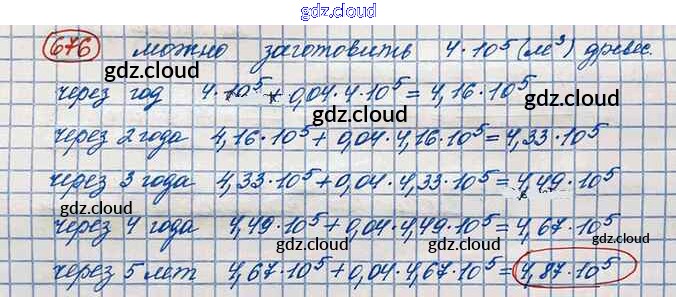 gdz.cloud
676 можно заготовить 4·10⁵ (м³) древес.
gdz.cloud
через год 4·10⁵ + 0,04·4·10⁵ = 4,16·10⁵
gdz.cloud
через 2 года 4,16·10⁵ + 0,04·4,16·10⁵ = 4,33·10⁵
gdz.cloud gdz.cloud
через 3 года 4,33·10⁵ + 0,04·4,33·10⁵ = 4,49·10⁵
gdz.cloud
через 4 года 4,49·10⁵ + 0,04·4,49·10⁵ = 4,67·10⁵
gdz.cloud gdz.cloud
через 5 лет 4,67·10⁵ + 0,04·4,67·10⁵ = 4,87·10⁵
gdz.cloud